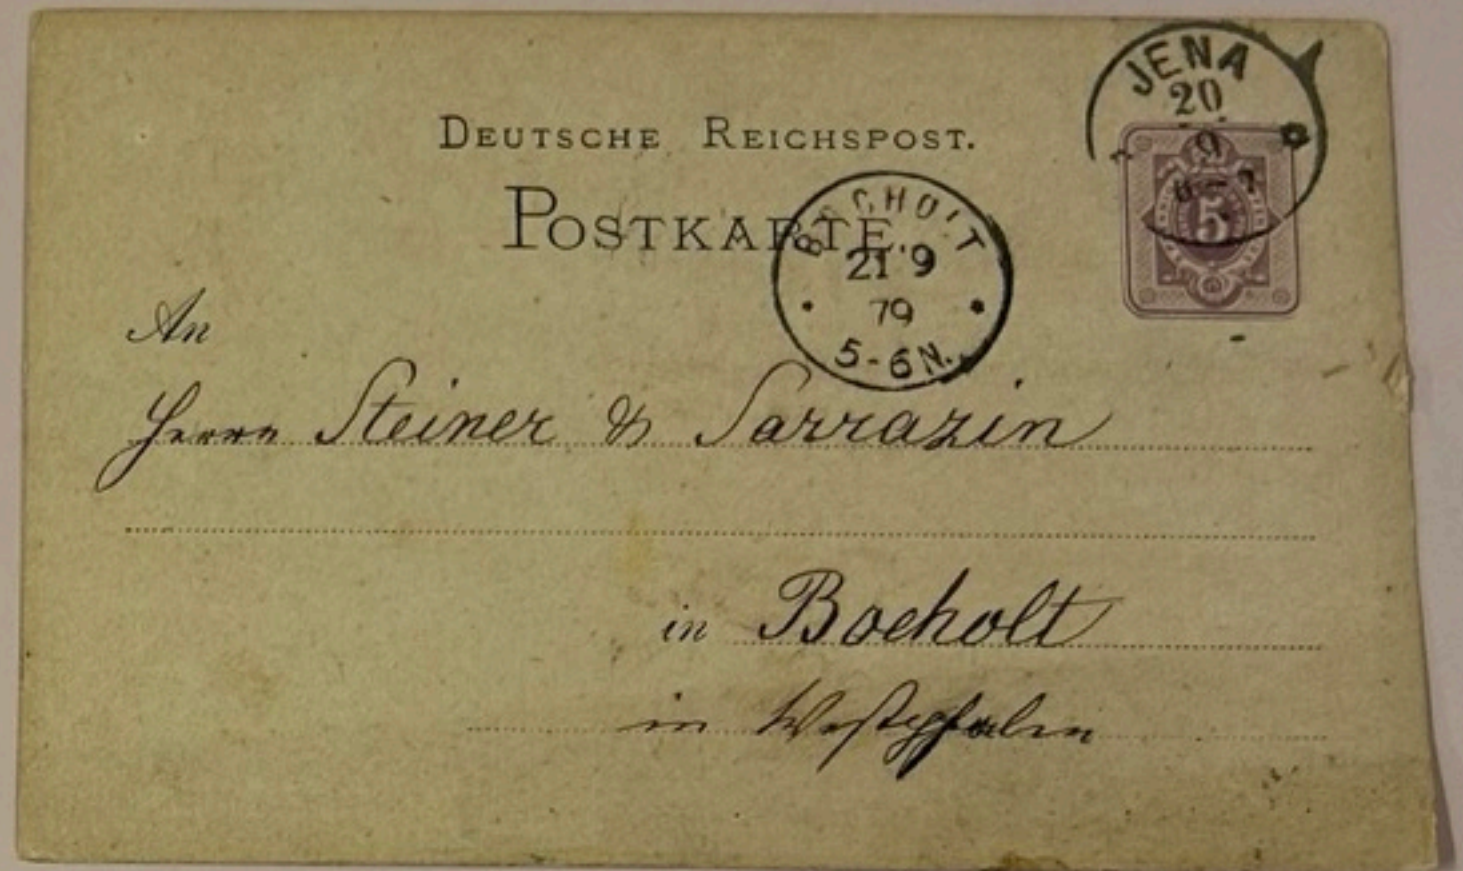 DEUTSCHE REICHSPOST.
POSTKARTE.
JENA
20
9
5
BOCHOLT
21 9
79
5-6N.
An
Herrn Steiner & Sarrazin
in Bocholt
in Westphalen